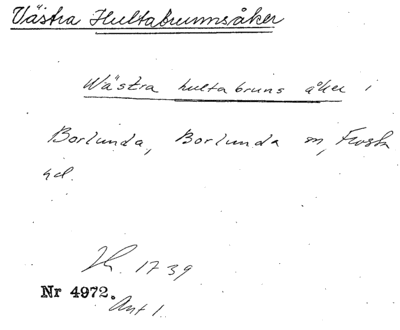 Västra Hultabrunnsåker
Wästra hultabruns åker i
Borlunda, Borlunda sn, Frosta
hd.
Jh. 1739
Nr 4972.
Akt 1